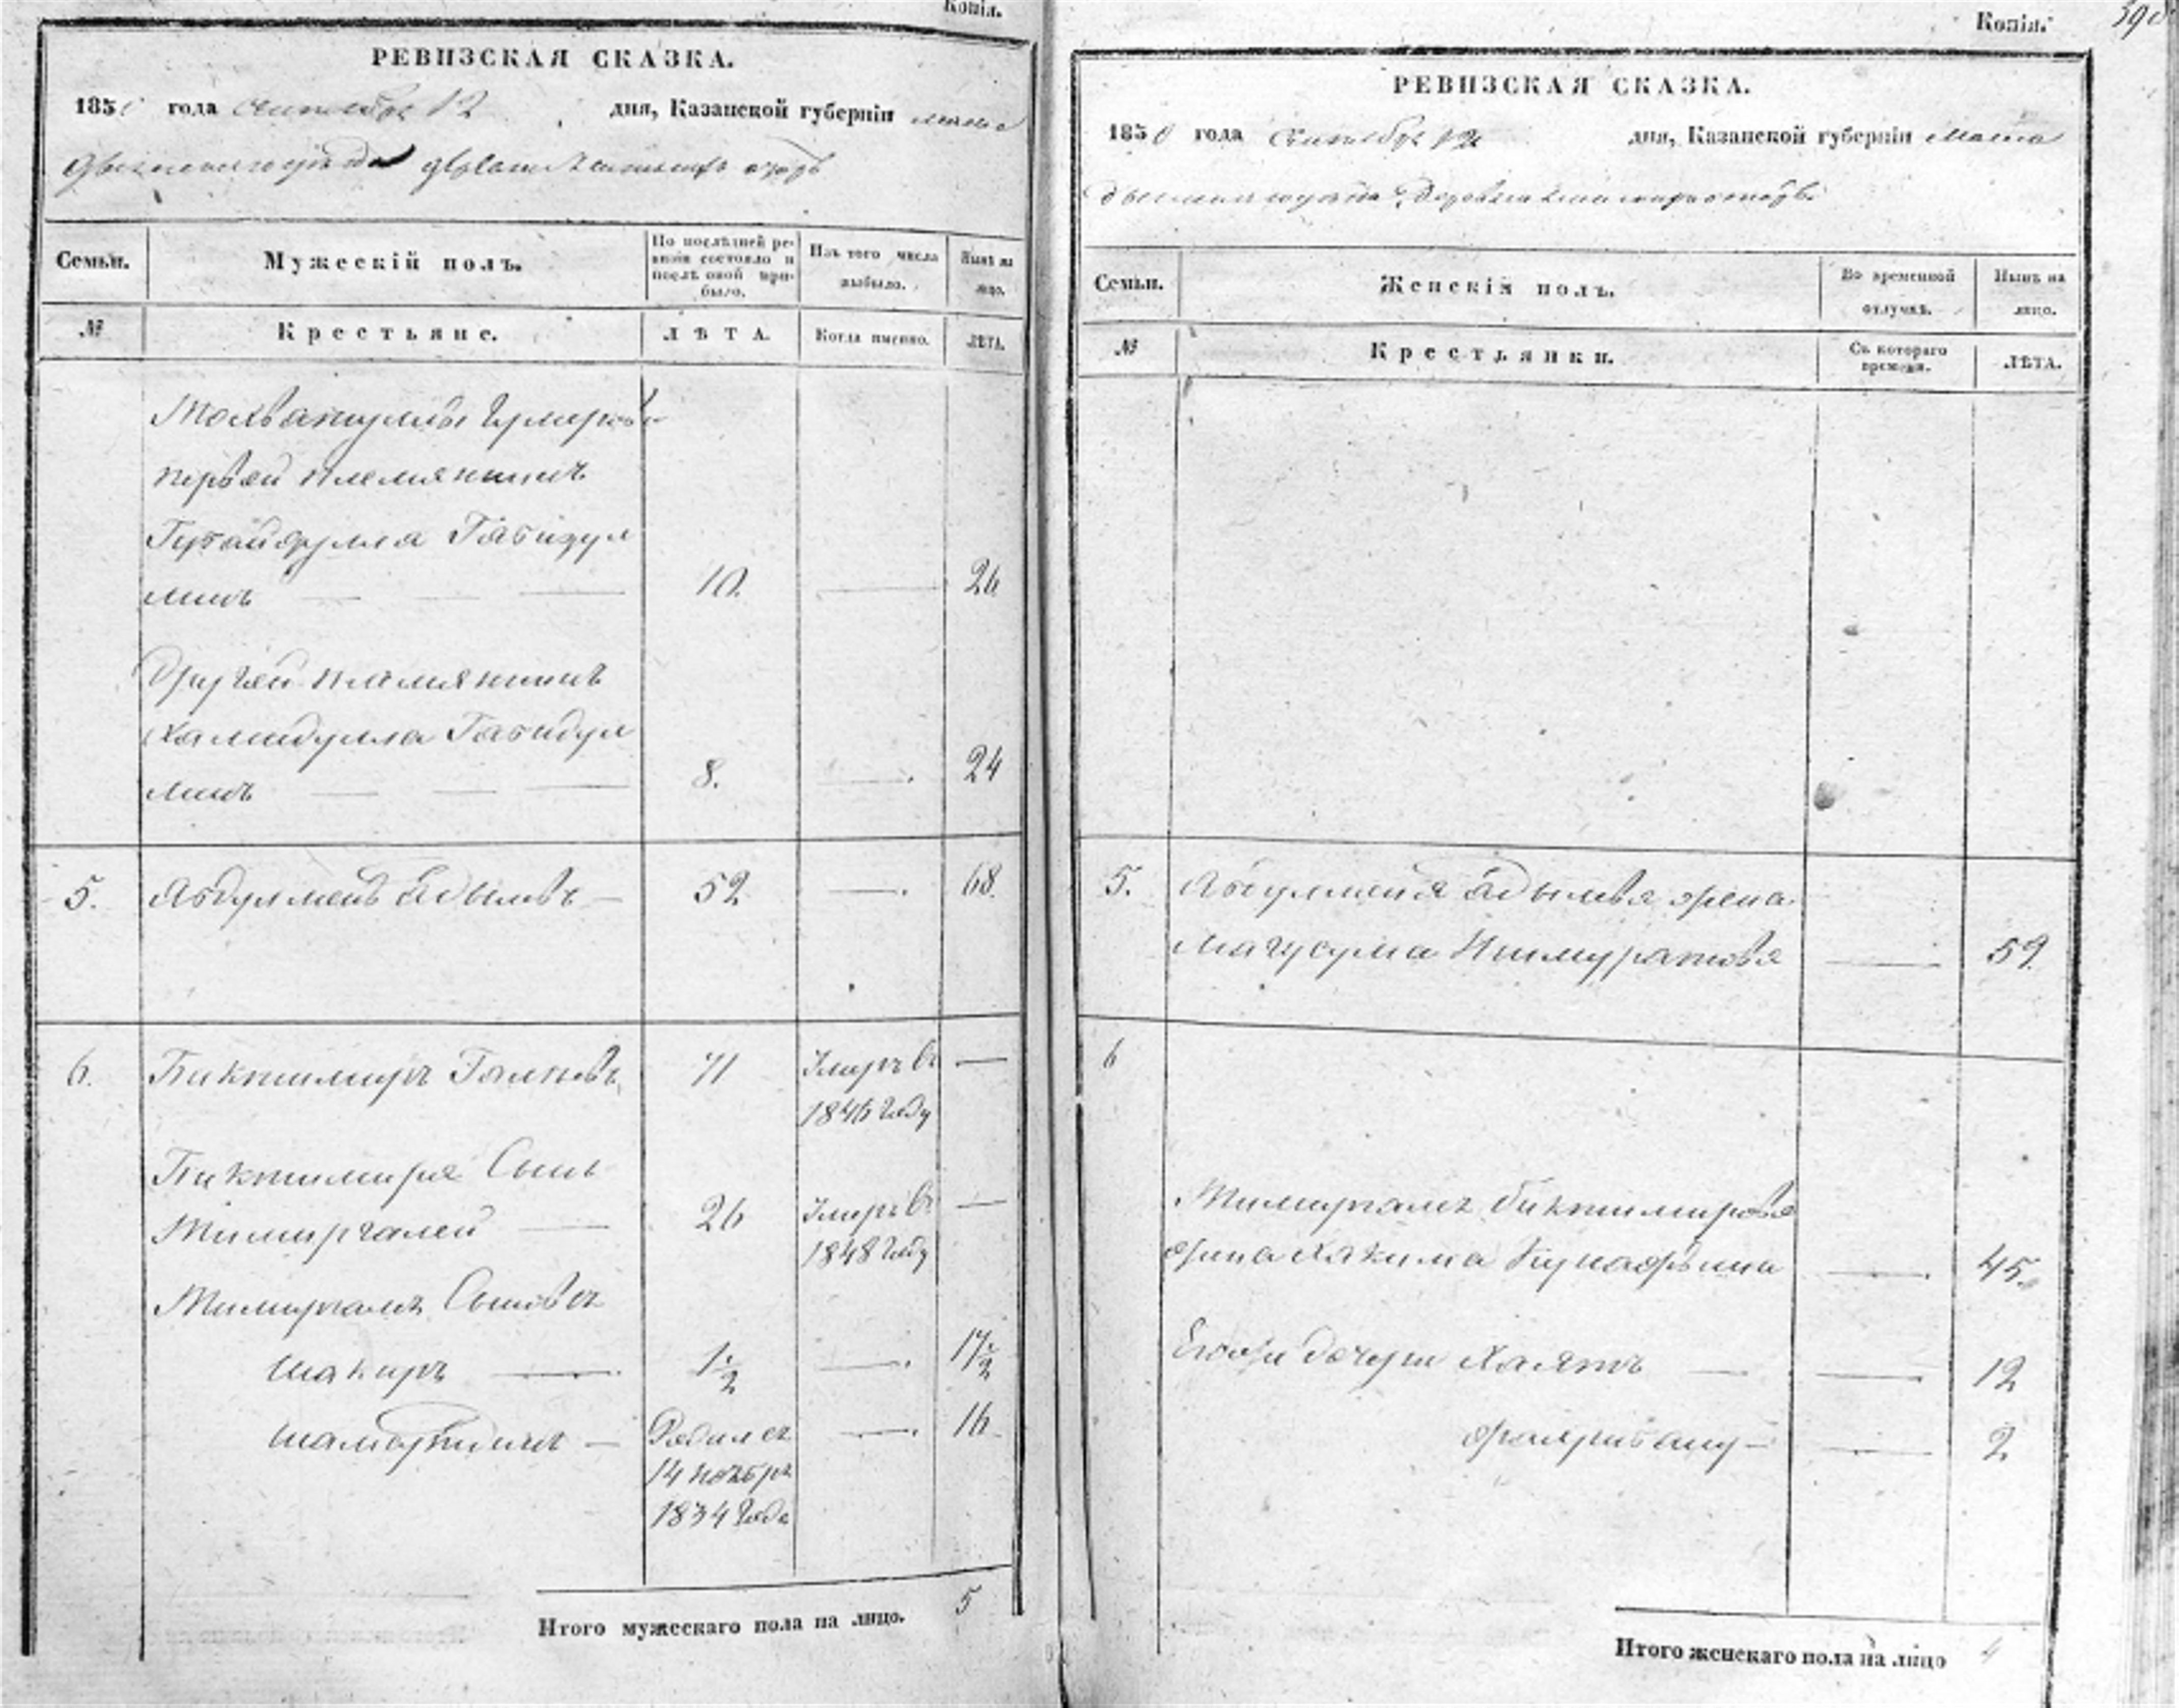 Копія.
РЕВИЗСКАЯ СКАЗКА.
1850 года сентября 12 дня, Казанской губерніи мама
дышскаго уѣзда
Семьи.
Мужескій полъ.
По послѣдней ре-
визіи состояло и
послѣ оной при-
было.
Изъ того числа
выбыло.
Нынѣ на
лицо.
№
Крестьяне.
ЛѢТА.
Когда именно.
ЛѢТА.
первой племянникъ
Габидул
линъ 10 26
Другой племянникъ
Хамидулла Габидул
линъ 8. 24
5. Абдулменъ Адыловъ 52 68.
6. Биктимиръ 71 Умеръ въ
1846 году
Биктимира Сынъ
Тимиргалей 26 Умеръ въ
1848 году
Тимиргалея Сыновья
Шакиръ 1 1/2 17 1/2
Родился 16
14 ноября
1834 года
Итого мужескаго пола на лицо. 5
Копія.
РЕВИЗСКАЯ СКАЗКА.
1850 года сентября 12 дня, Казанской губерніи мама
дышскаго уѣзда деревни
Семьи.
Женскій полъ.
Во временной
отлучкѣ.
Нынѣ на
лицо.
№
Крестьянки.
Съ котораго
времени.
ЛѢТА.
5. Адылова жена
Магусума Ишмуратова 59.
6
Тимиргалея Биктимирова
жена Хакима 45.
Егож дочери 12
2
Итого женскаго пола на лицо 4